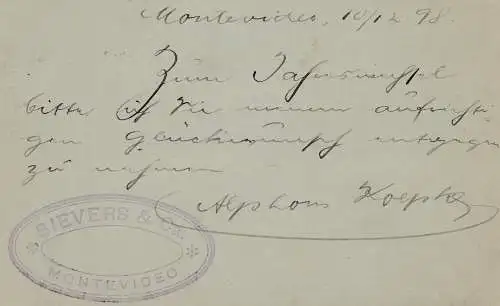 Montevideo, 10/12 98.
Zum Jahreswechsel
bitte ich Sie meinen aufrichti-
gen Glückwunsch entgegen
zu nehmen
Alphons
SIEVERS & Co.
MONTEVIDEO